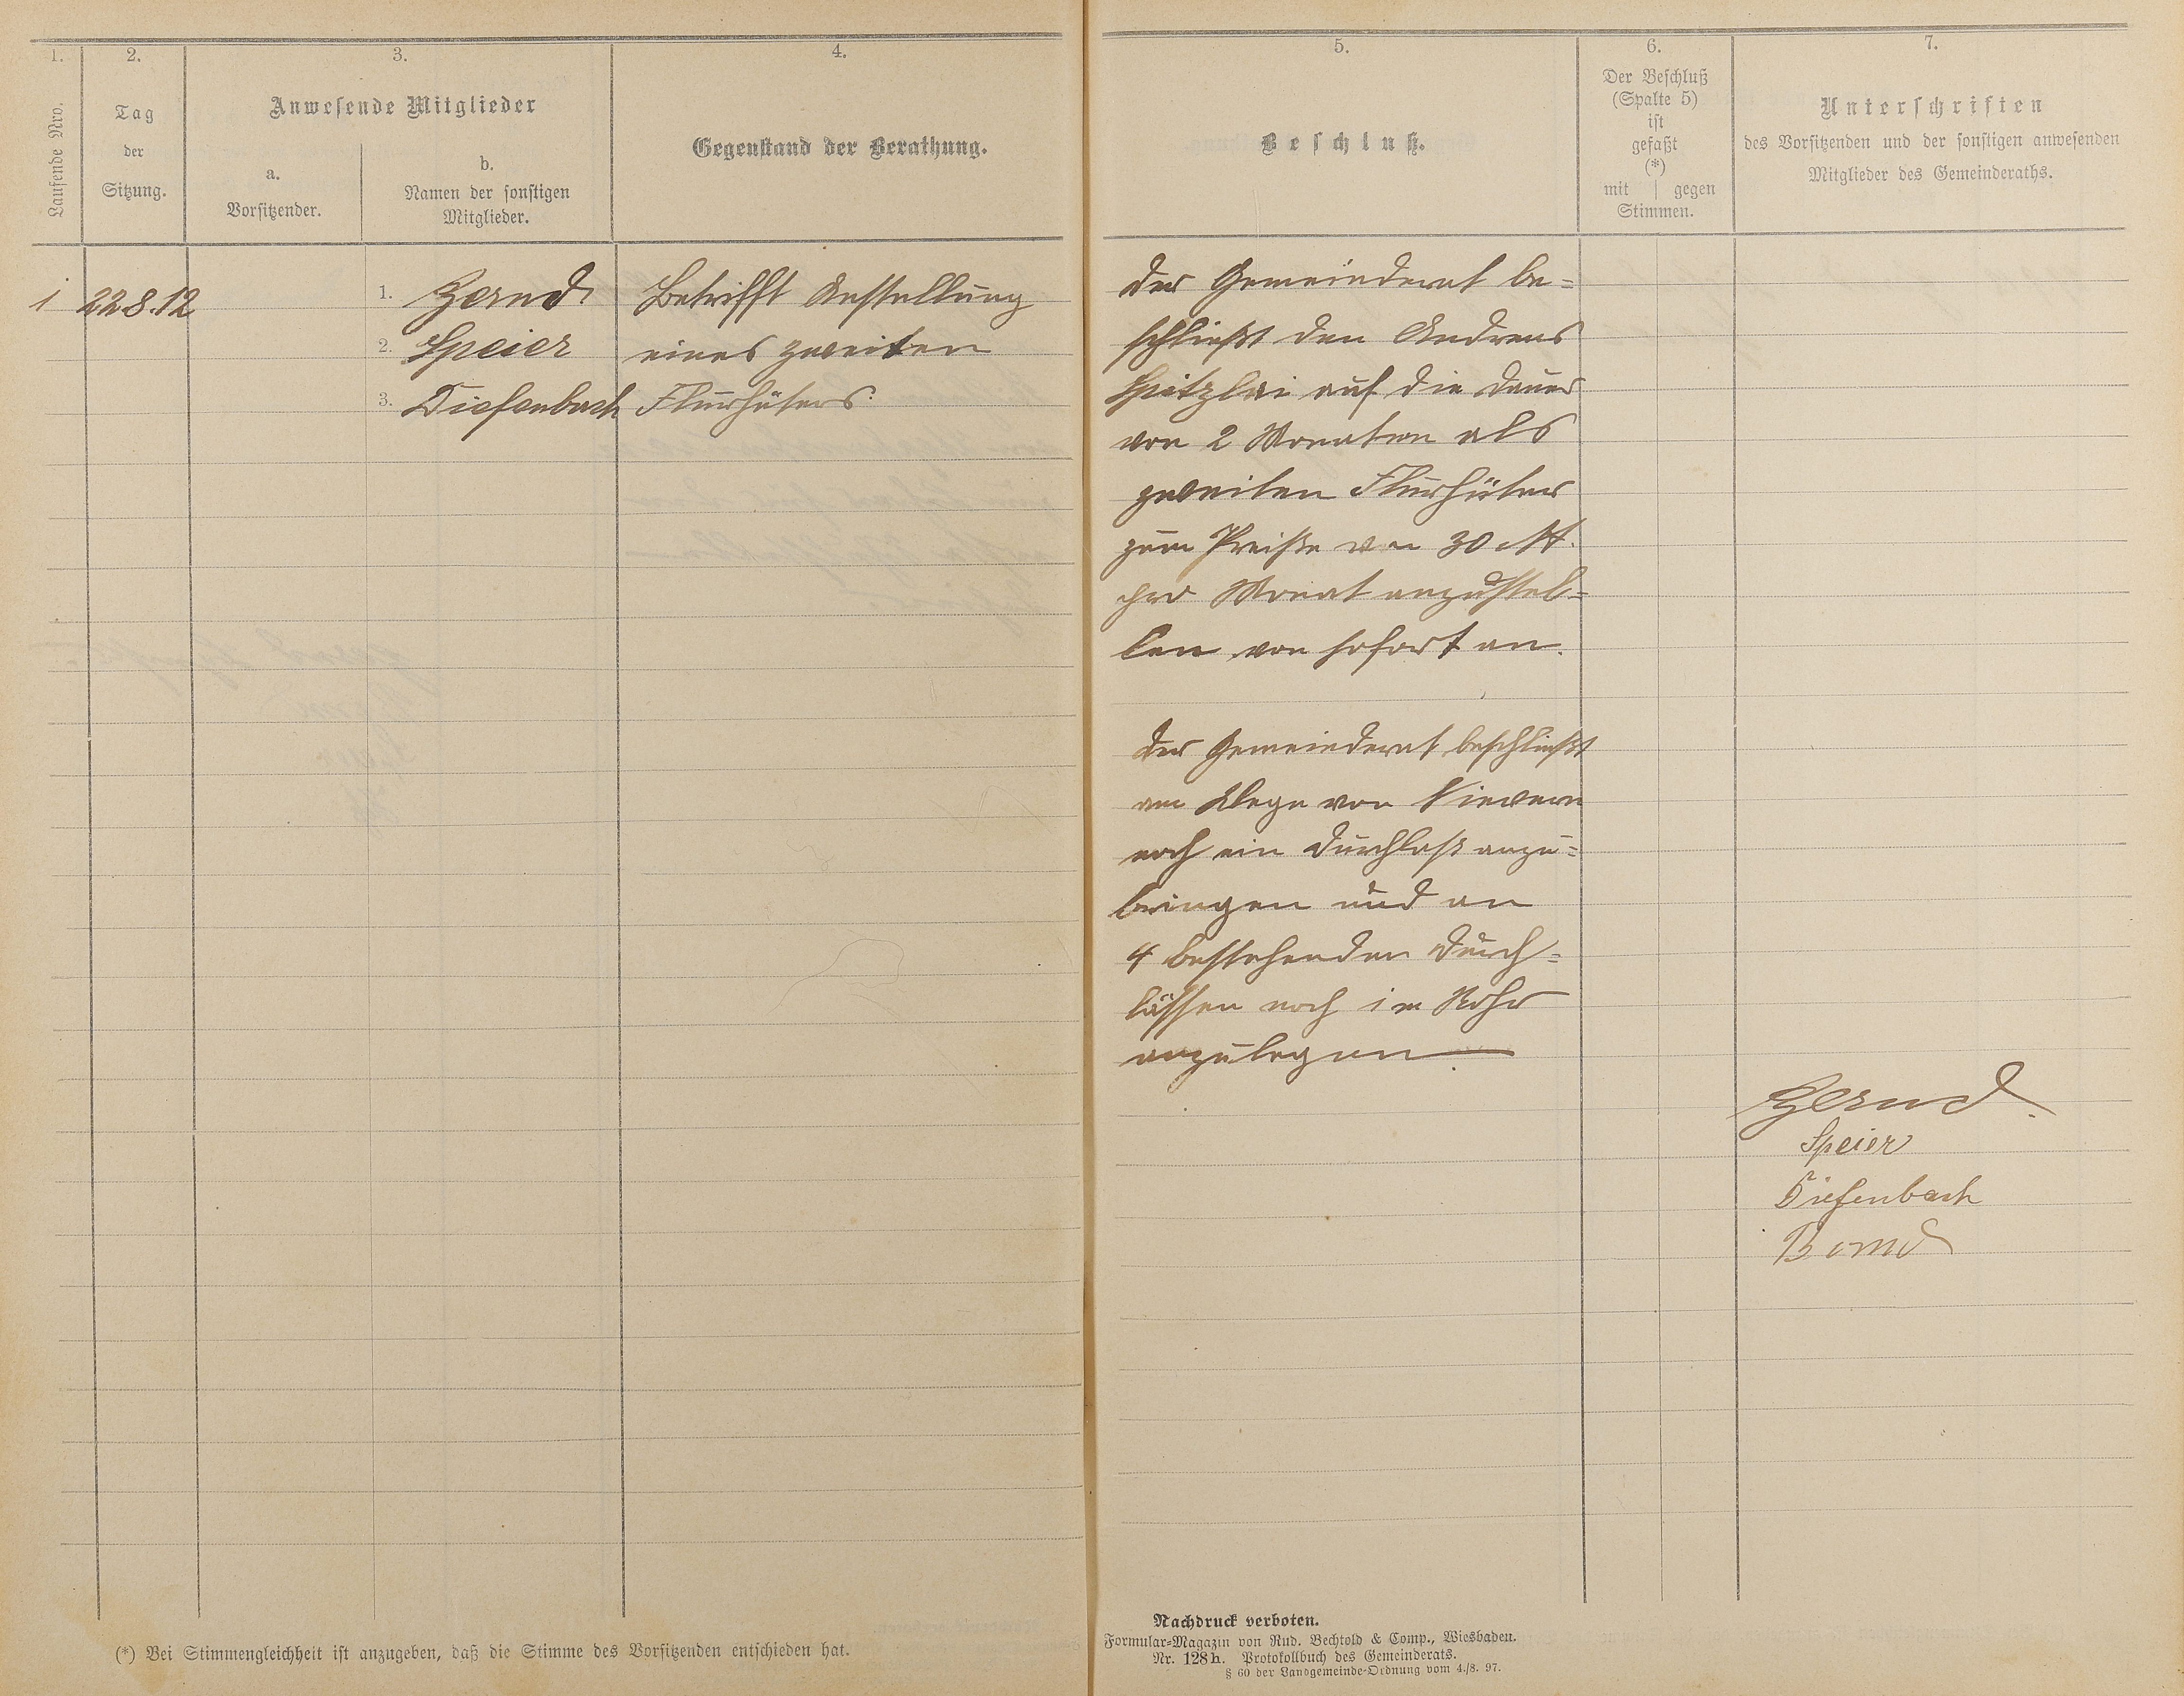 1.
2.
3.
4.
Laufende Nro.
Tag
der
Sitzung.
Anwesende Mitglieder
a.
Vorsitzender.
b.
Namen der sonstigen
Mitglieder.
Gegenstand der Berathung.
1 22.8.12
1. Zernd
2. Speier
3. Diefenbach
Betrifft Anstellung
eines zweiten
Flurhüters
(*) Bei Stimmengleichheit ist anzugeben, daß die Stimme des Vorsitzenden entschieden hat.
5.
6.
7.
Beschluß.
Der Beschluß
(Spalte 5)
ist
gefaßt
(*)
mit | gegen
Stimmen.
Unterschriften
des Vorsitzenden und der sonstigen anwesenden
Mitglieder des Gemeinderaths.
Der Gemeinderat be=
schließt den Andreas
Spitzlei auf die Dauer
von 2 Monaten als
zweiten Flurhüter
zum Preiße von 30 M.
pro Monat anzustel=
len von sofort an.
Der Gemeinderat beschließt
am Wege von Nievern
noch ein Durchlaß anzu=
bringen und an
4 bestehenden Durch=
lässen noch im Rohr
anzulegen
Zernd
Speier
Diefenbach
Nachdruck verboten.
Formular=Magazin von Rud. Bechtold & Comp., Wiesbaden.
Nr. 128h. Protokollbuch des Gemeinderats.
§ 60 der Landgemeinde=Ordnung vom 4./8. 97.